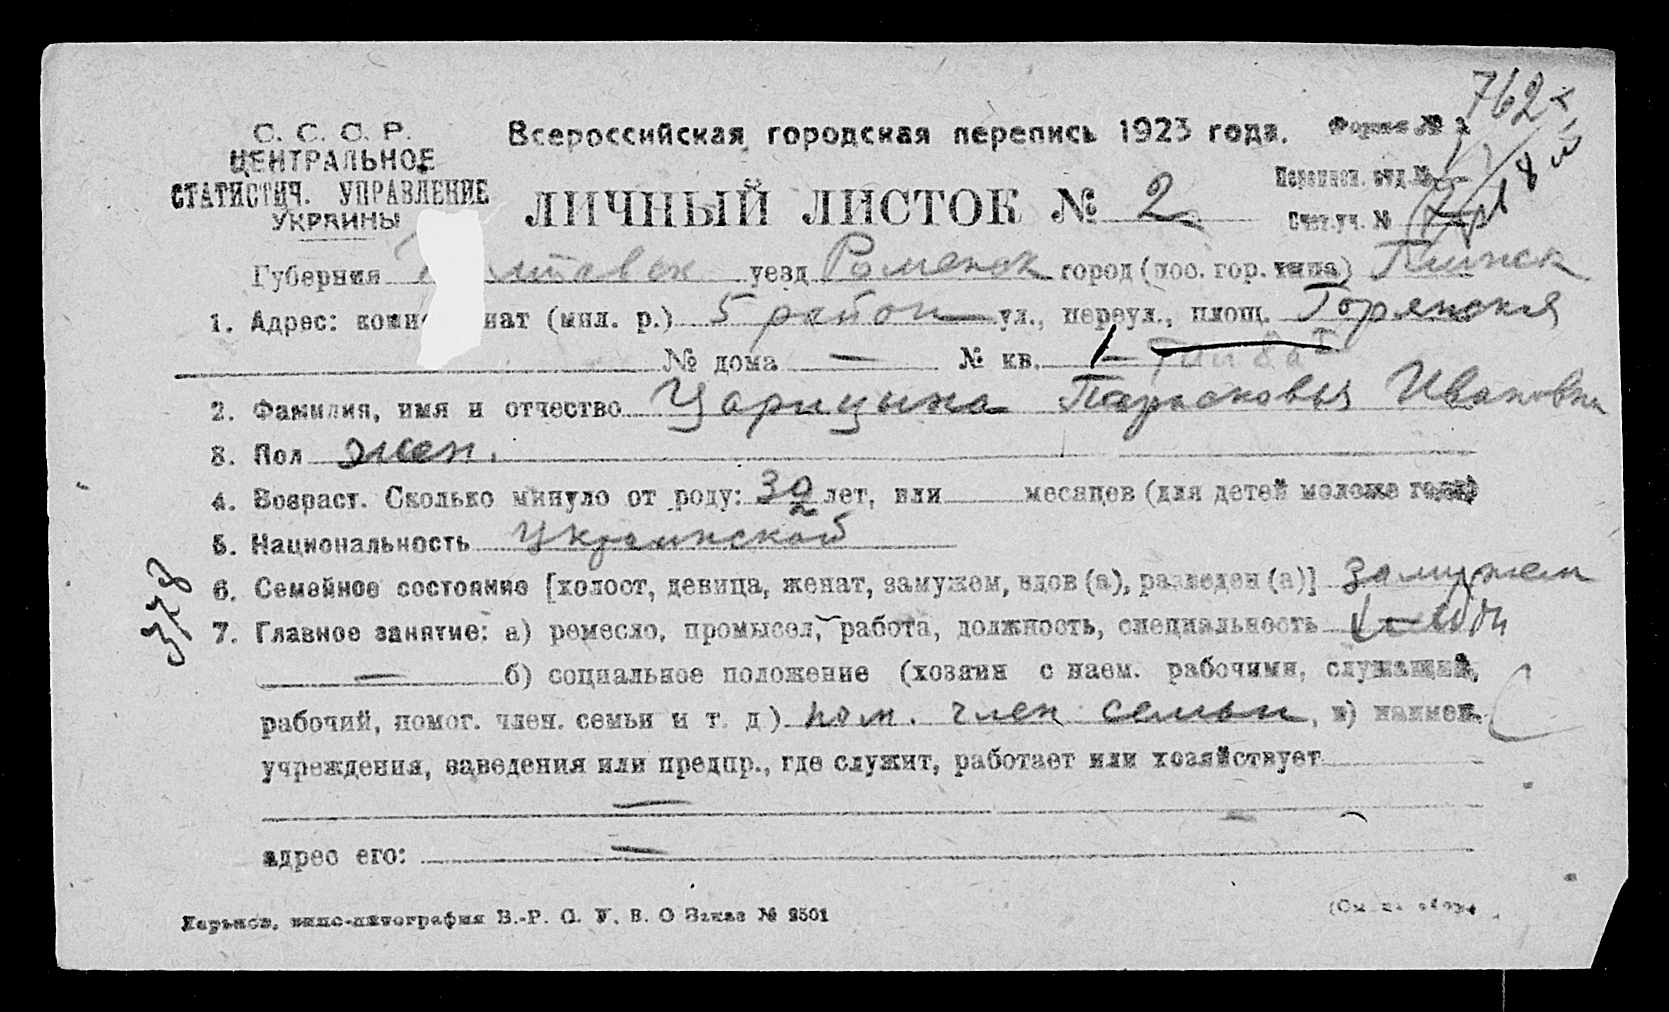 762
С. С. С. Р.
ЦЕНТРАЛЬНОЕ
СТАТИСТИЧ. УПРАВЛЕНИЕ
УКРАИНЫ
Всероссийская городская перепись 1923 года. Форма №
ЛИЧНЫЙ ЛИСТОК № 2
Переписн. отд. №
Счет. уч. №
Губерния уезд Роменск город (пос. гор. типа) Глинск
1. Адрес: (мил. р.) 5 район ул., переул., площ. Горянская
№ дома — № кв.
2. Фамилия, имя и отчество Царицына Парасковья Ивановна
3. Пол жен.
4. Возраст. Сколько минуло от роду: 32 лет, или месяцев (для детей моложе года)
5. Национальность Украинской
378
6. Семейное состояние [холост, девица, женат, замужем, вдов (а), разведен (а)] замужем
7. Главное занятие: а) ремесло, промысел, работа, должность, специальность
— б) социальное положение (хозяин с наем. рабочими, служащий,
рабочий, помог. член. семьи и т. д.) пом. член семьи, в) наимен.
учреждения, заведения или предпр., где служит, работает или хозяйствует
—
адрес его: —
Харьков, типо-литография В.-Р. С. У. В. О Заказ № 2501